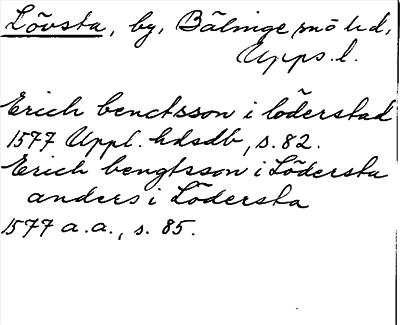 Lövsta, by, Bälinge, snö hd,
Upps. l.
Erich benctsson i löderstad
1577 Uppl. hdsdb, s. 82.
Erich bengtsson i Lödersta
anders i Lödersta
1577 a.a., s. 85.